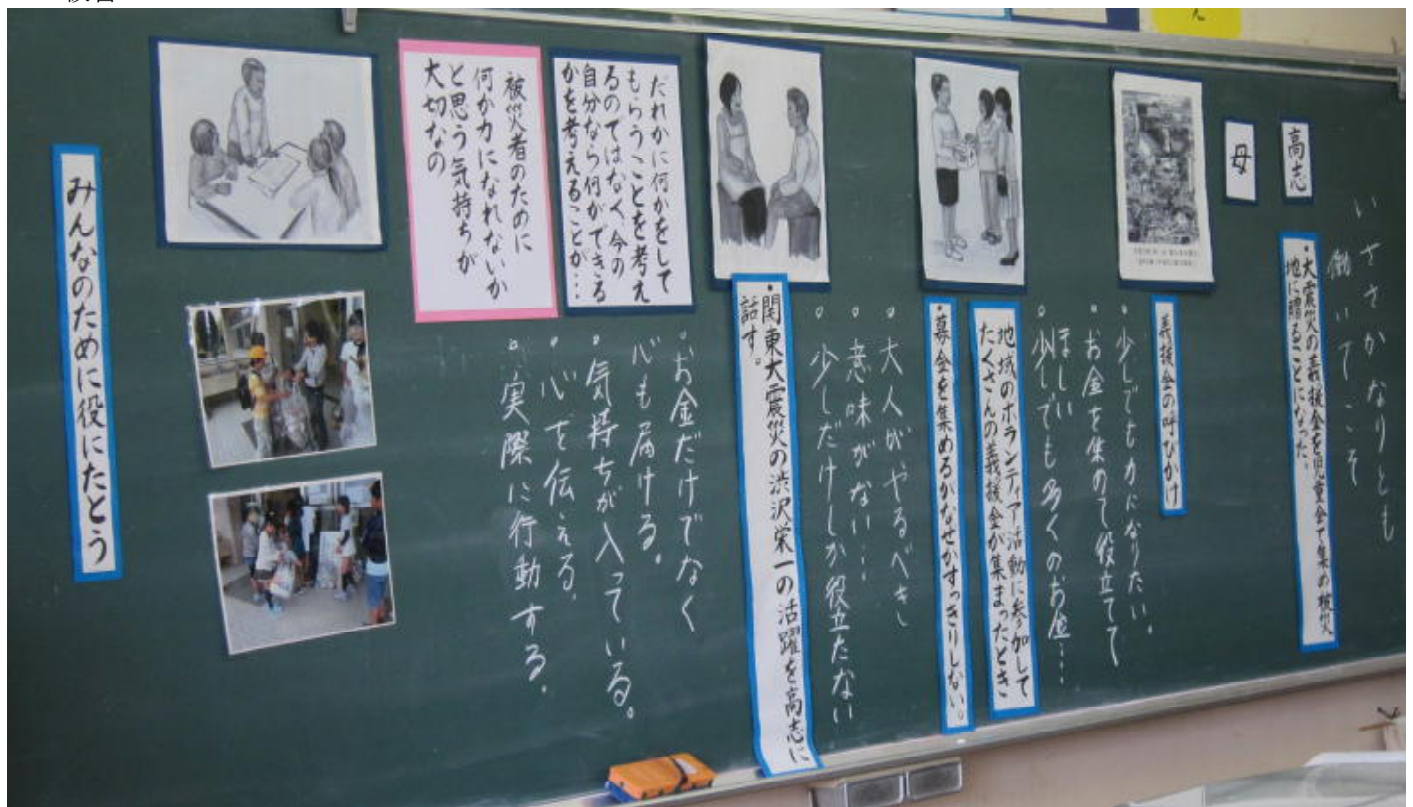 いささかなりとも
働いてこそ
高志
母
・大震災の義援金を児童会で集め被災
地に贈ることになった。
義援金の呼びかけ
。少しでも力になりたい。
。お金を集めて役立てて
ほしい
。少しでも多くのお金…
地域のボランティア活動に参加して
たくさんの義援金が集まったとき
・募金を集めるがなぜかすっきりしない。
。大人がやるべき
。意味がない…
。少しだけしか役立たない
・関東大震災の渋沢栄一の活躍を高志に
話す。
だれかに何かをして
もらうことを考え
るのではなく、今の
自分なら何ができる
かを考えることが…
被災者のために
何か力になれないか
と思う気持ちが
大切なの
。お金だけでなく
心も届ける。
。気持ちが入っている。
。心を伝える。
。実際に行動する。
みんなのために役にたとう